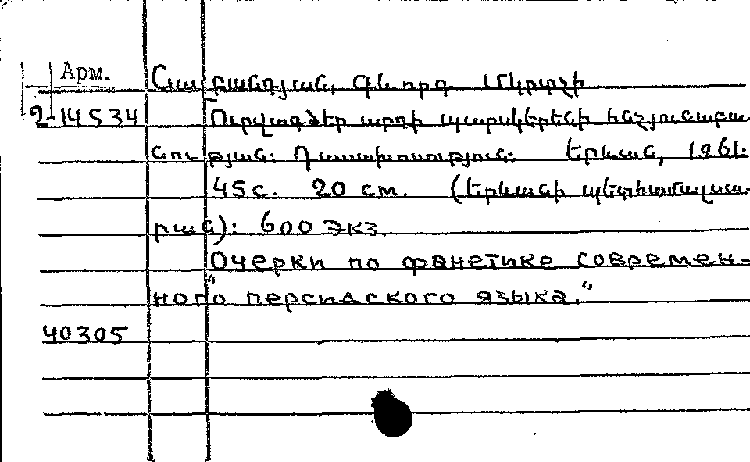 Арм. Նալբանդյան, Գևորգ Մկրտչի
2-14534 Ուրվագծեր արդի պարսկերենի հնչյունաբա
նության: Դասախոսություն: Երևան, 1961.
45 с. 20 см. (Երևանի պետհամալսա
րան): 600 экз.
„Очерки по фонетике современ-
ного персидского языка."
40305